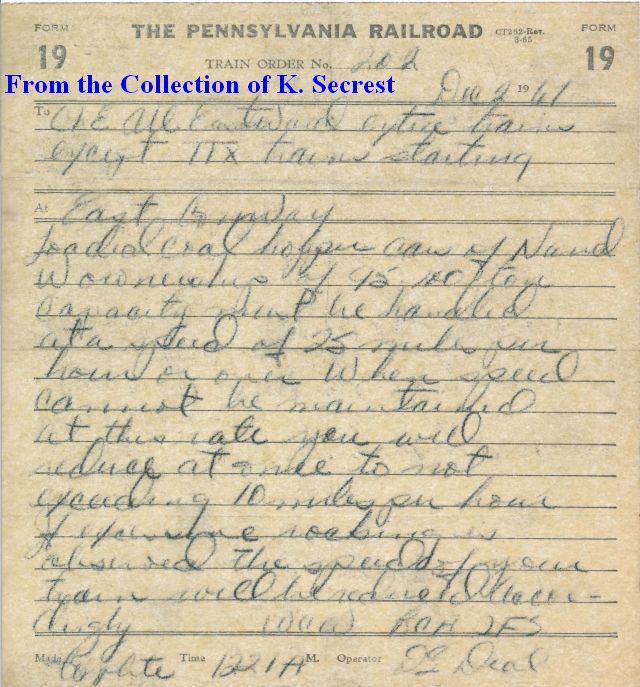 FORM 19
THE PENNSYLVANIA RAILROAD
CT262-Rev. 3-65
FORM 19
TRAIN ORDER No. 202
From the Collection of K. Secrest
Dec 2 1961
To C&E All Eastward extra trains
except TTX trains starting
At East Conway
Loaded coal hopper cars of N and
W ownership of 95 100 ton
capacity must be handled
at a speed of 25 miles per
hour or over When speed
cannot be maintained
at this rate you will
reduce at once to not
exceeding 10 miles per hour
If excessive rocking is
observed the speed of your
train will be reduced accor-
dingly RAH JFS
Made Complete Time 1221 A M. Operator Deal